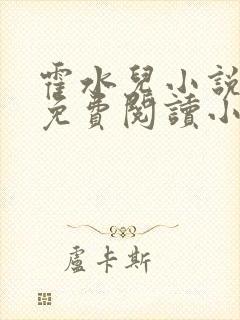 霍水兒小說
免費閱讀小
盧卡斯